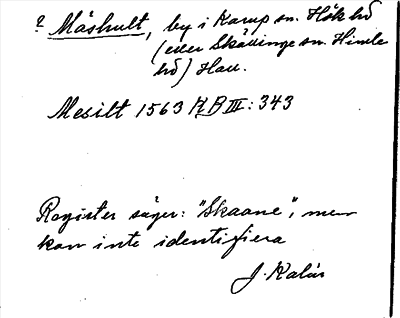 ? Måshult, by i Karup sn. Hök hd
(eller Skällinge sn. Himle
hd) Hall.
Mesilt 1563 KB III: 343
Register säger: "Skaane", men
kan inte identifiera
J. Kalár